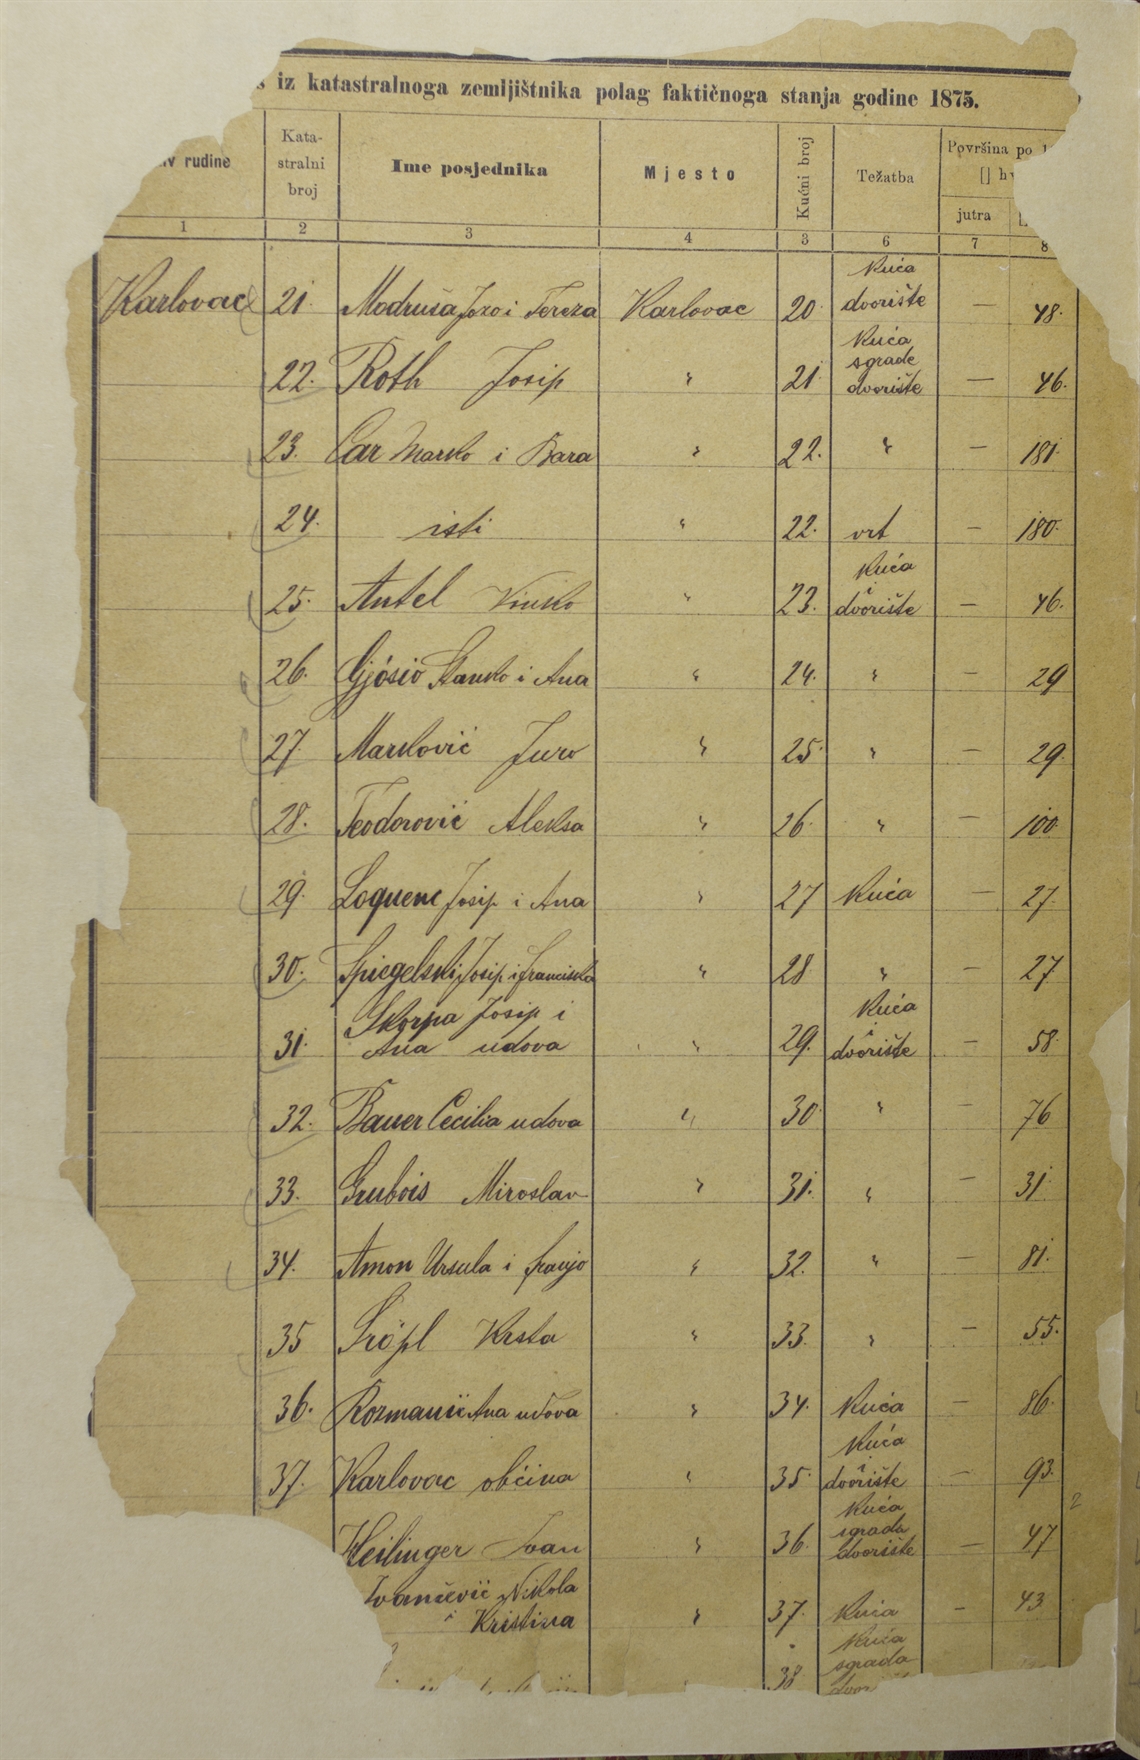 iz katastralnoga zemljištnika polag faktičnoga stanja godine 1875.
rudine
Kata-
stralni
broj
Ime posjednika
Mjesto
Kućni broj
Težatba
Površina po
[] hv
jutra
1 2 3 4 3 6 7 8
Karlovac 21. Modruša Jozo i Tereza Karlovac 20. Kuća dvorište — 48.
22. Roth Josip " 21 Kuća sgrade dvorište — 46.
23. Car Marko i Bara " 22. " — 181.
24. isti " 22. vrt — 180.
25. Antel Vinko " 23. Kuća i dvorište — 46.
26. Stanko i Ana " 24. " — 29
27. Marković Juro " 25. " — 29.
28. Teodorović Aleksa " 26. " — 100.
29. Loquenc Josip i Ana " 27 Kuća — 27.
30. Spiegelski Josip i Franciska " 28 " — 27
31. Skorpa Josip i Ana udova " 29. Kuća i dvorište — 58.
32. Bauer Cecilia udova " 30. " — 76
33. Miroslav " 31. " — 31.
34. Amon Ursula i Franjo " 32. " — 81.
35 Krsta " 33. " — 55.
36. Rozmanić Ana udova " 34. Kuća — 86.
37. Karlovac občina " 35. Kuća i dvorište — 93.
Heilinger Ivan " 36. Kuća sgrada dvorište — 47
Ivančević Nikola i Kristina " 37. Kuća — 43
38 Kuća sgrada